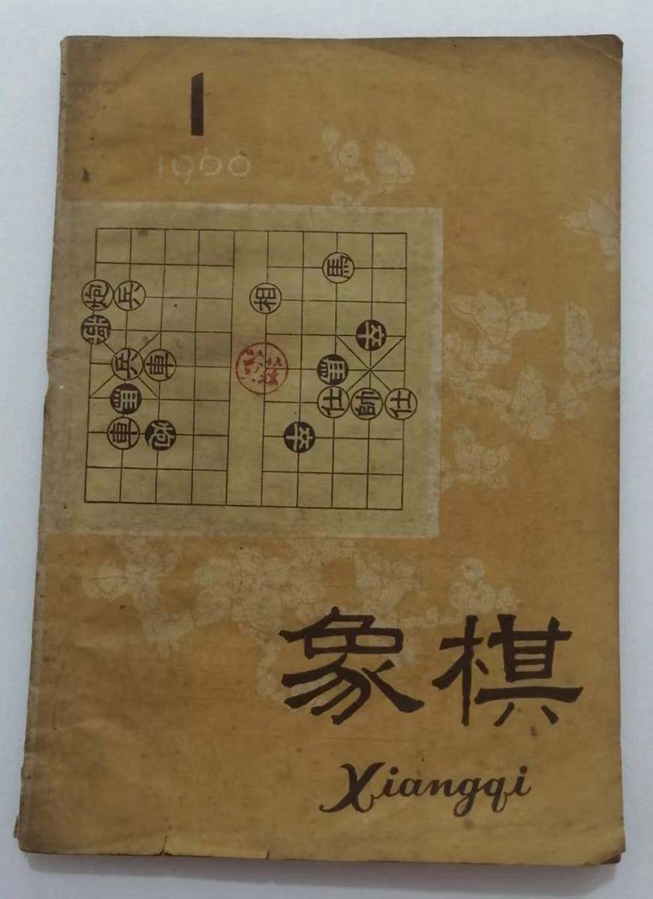 1
馬
炮 兵 相
將 卒
兵 車 馬
馬 仕 帥 仕
車 炮 卒
象棋
Xiangqi